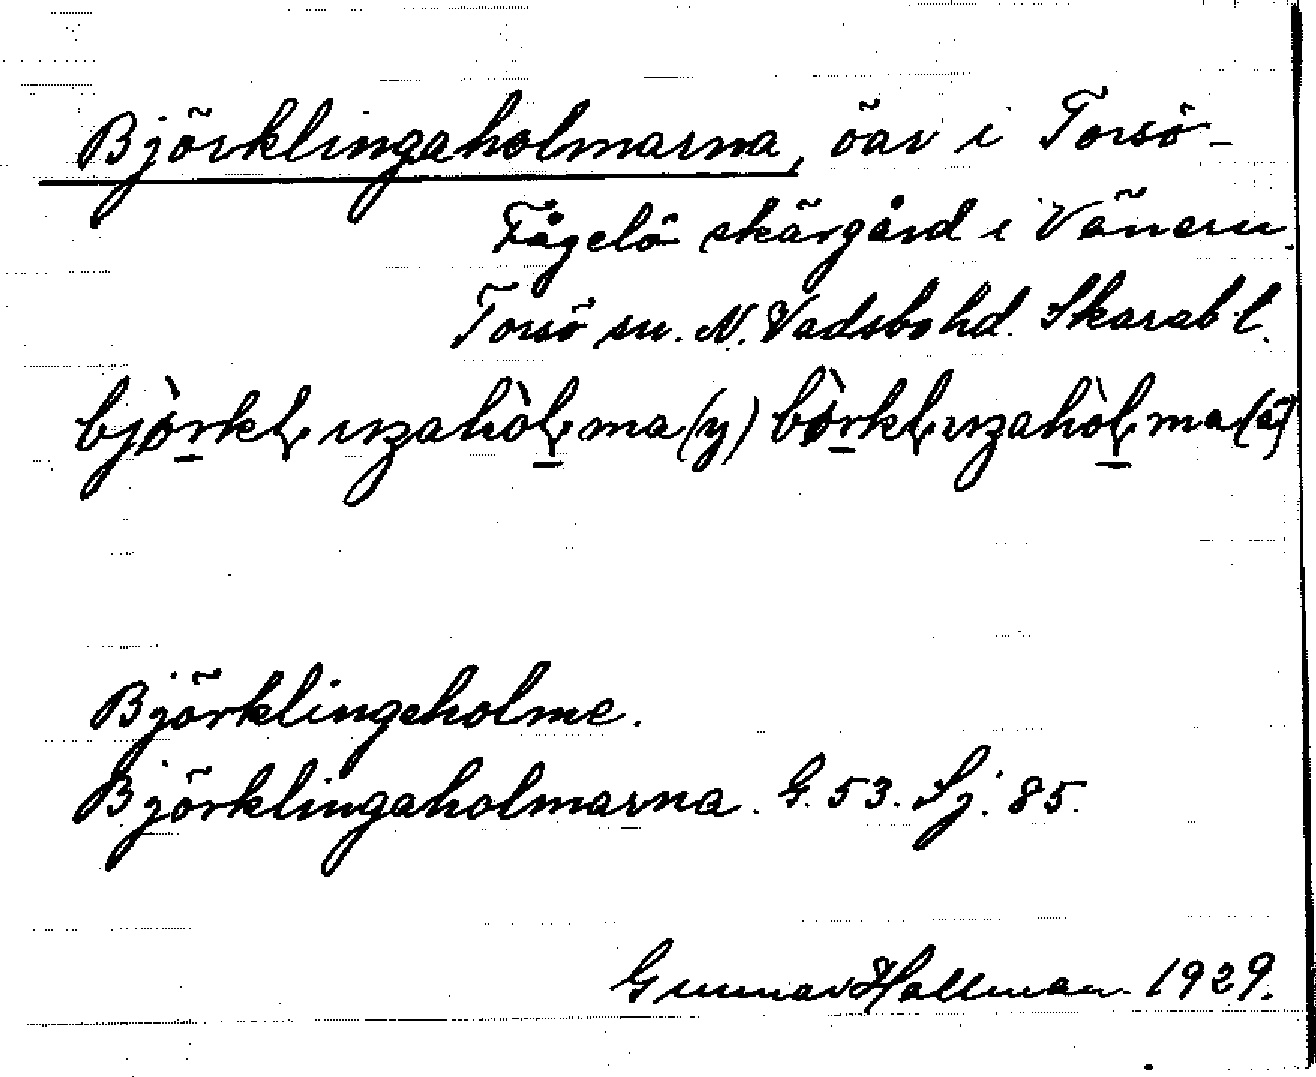 Björklingaholmarna, öar i Torsö-
Fågelö skärgård i Vänern.
Torsö sn. N. Vadsbo hd. Skarab l.
(y) (ä)
Björklingeholme.
Björklingaholmarna. G. 53. Sj. 85.
Gunnar Hallman 1929.